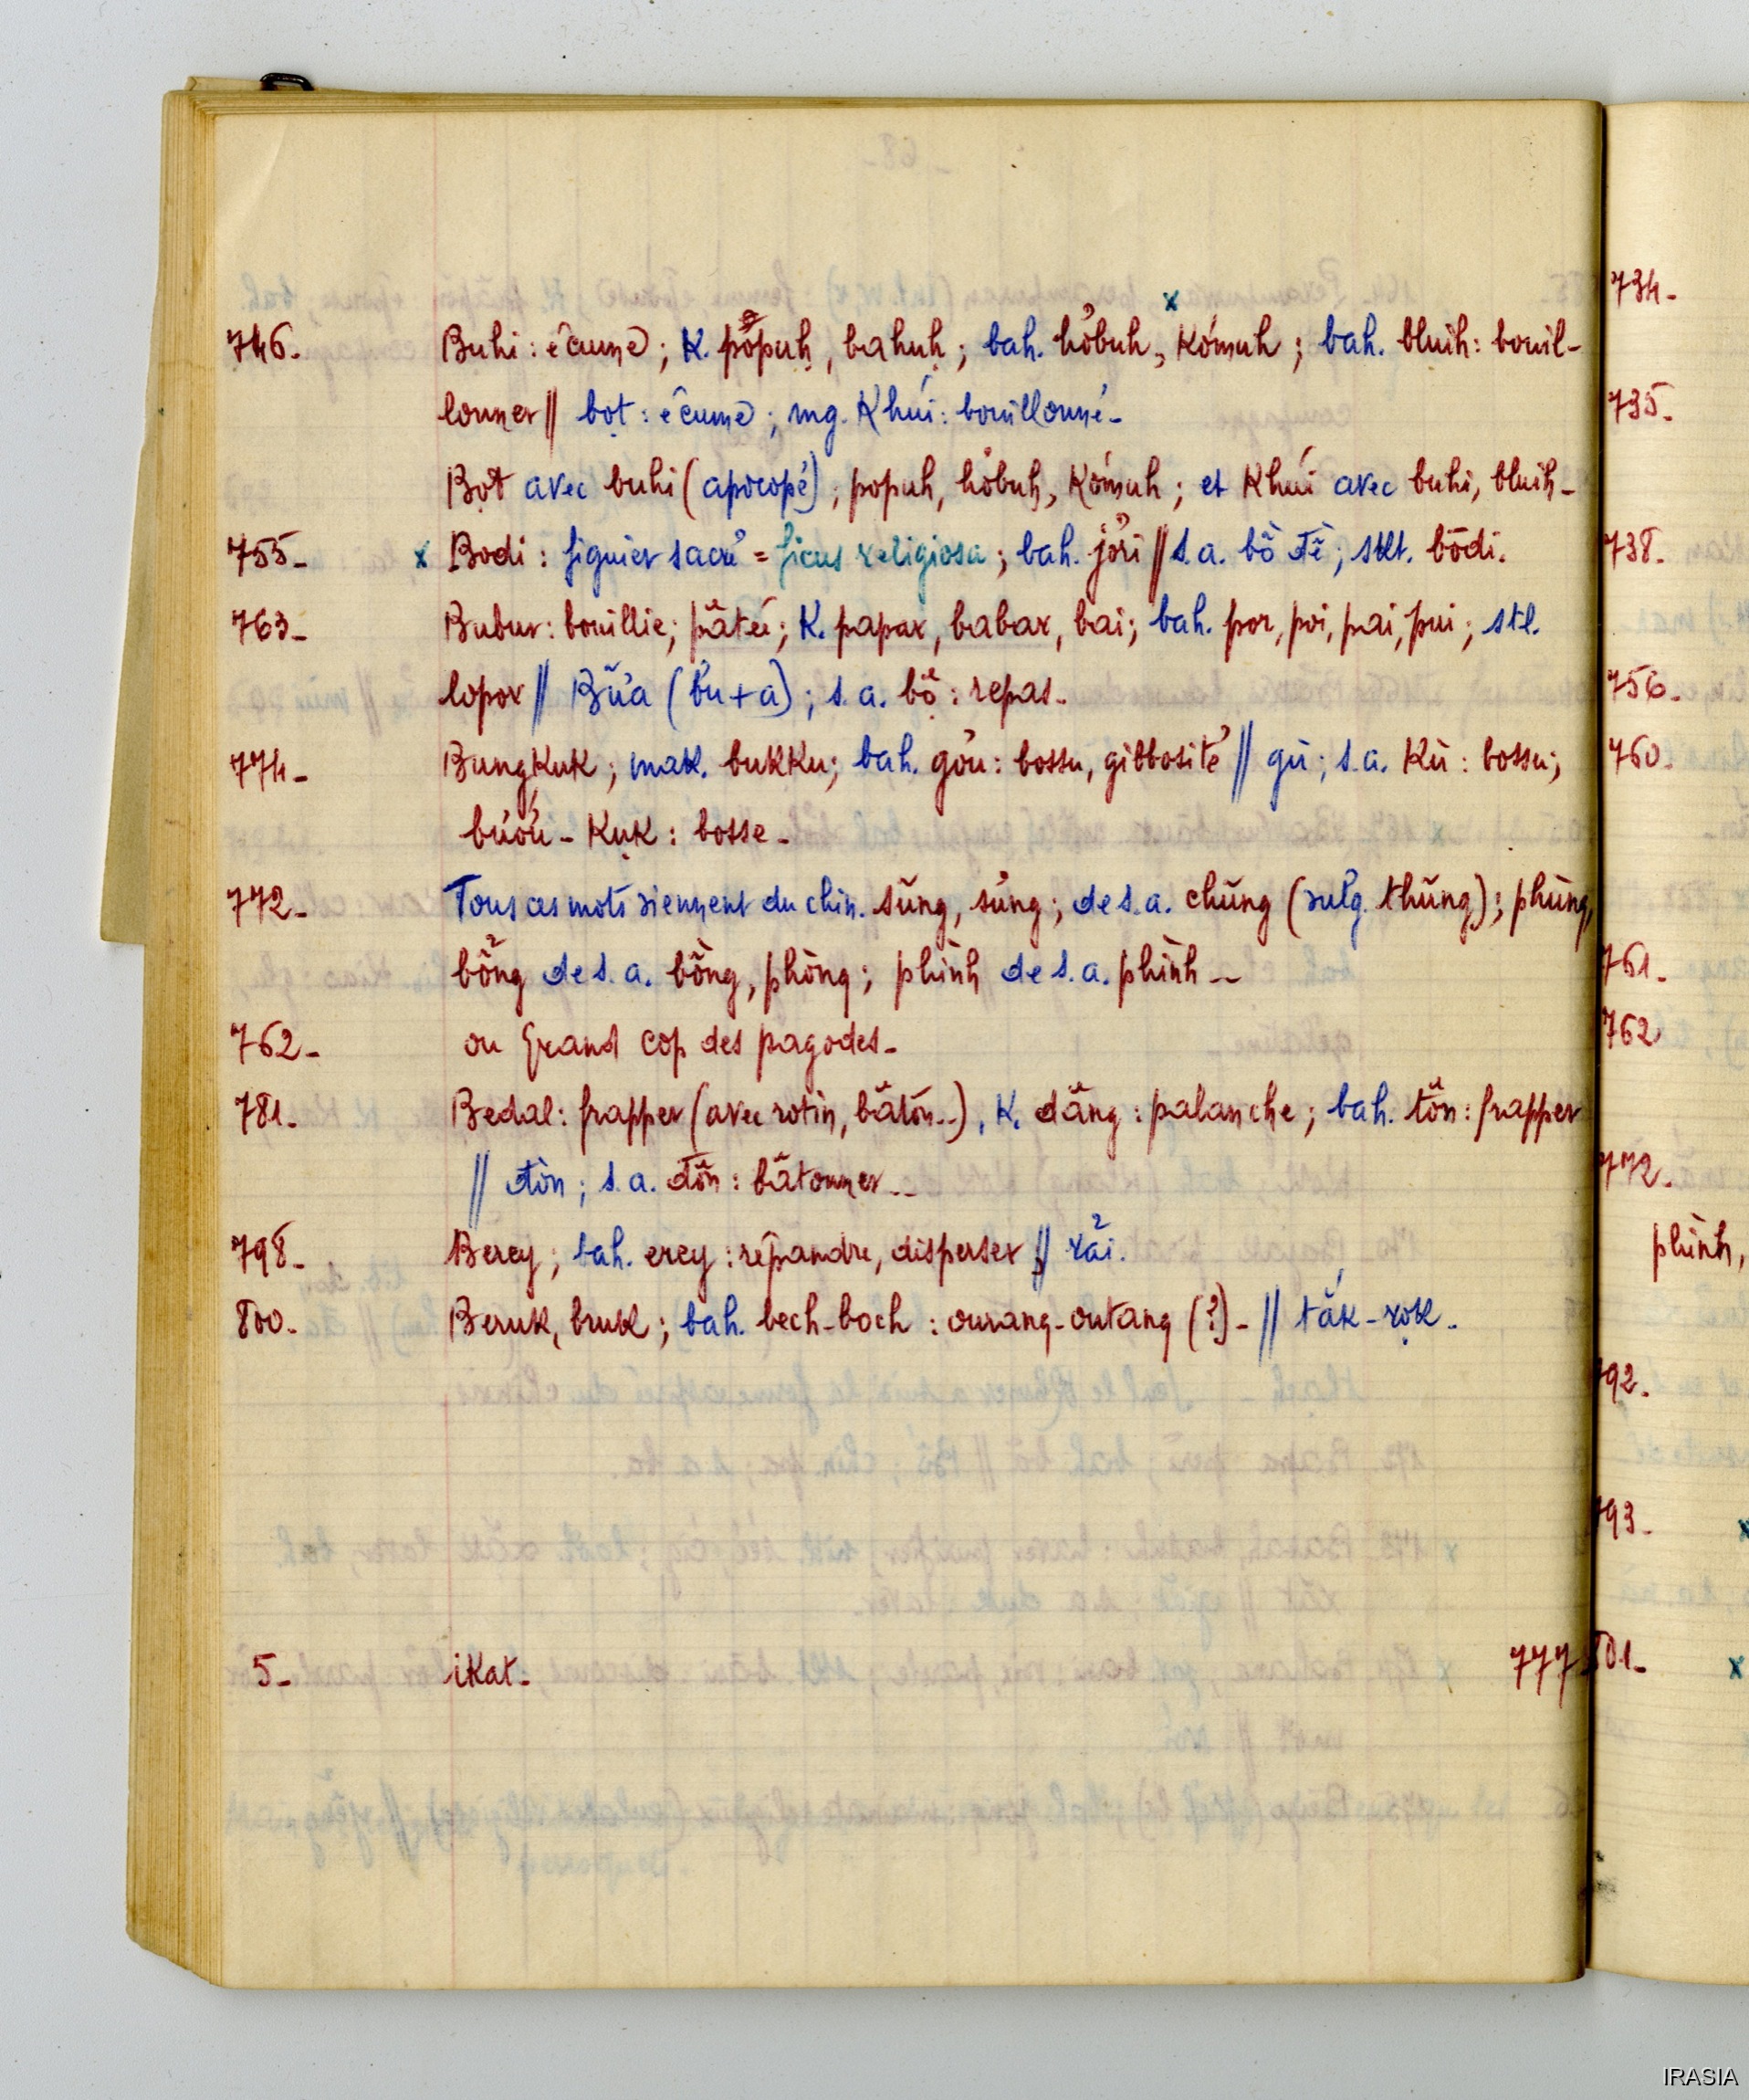 746. Buhi : écume ; K. pơpuḥ, bahuḥ ; bah. hơbuh, x Kơmuh ; bah. bluih : bouil-
lonner // bọt : écume ; mg. Khúi : bouillonné -
Bọt avec buhi (apocopé) ; popuh, hơbuh, Kơmuh ; et Khúi avec buhi, bluih -
755 - x Bodi : figuier sacré = ficus religiosa ; bah. jơri // s. a. bồ đề ; skt. bōdi.
763 - Bubur : bouillie ; pâtée ; K. papar, babar, bai ; bah. por, poi, pai, pui ; stl.
lopor // Bữa (bu + a) ; s. a. bộ : repas -
774 - BungKuK ; mak. bukKu ; bah. gơu : bossu, gibbosité // gù ; s. a. Kù : bossu ;
bướu - KụK : bosse -
772 - Tous ces mots viennent du chin. sũng, sủng ; de s. a. chũng (vulg. thũng) ; phùng,
bổng de s. a. bồng, phồng ; phình de s. a. phình --
762 - ou Grand cop des pagodes -
781. Bedal : frapper (avec rotin, bâton..), K. dâng : palanche ; bah. tôn : frapper
// đòn ; s. a. đốn : bâtonner --
798 - Berey ; bah. erey : répandre, disperser // rải.
800. Beruk, bruk ; bah. bech-boch : ourang-outang (?) - // tắk-rọk -
5 - iKat - 777
734 -
735 -
738.
756 -
760.
761 -
762
772 -
phình,
792 -
793 - x
801 - x
IRASIA